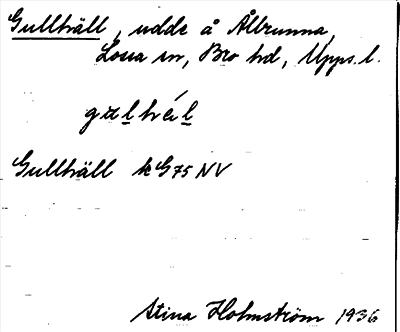 Gullhäll, udde å Ållrunna,
Låssa sn, Bro hd, Upps. l.
Gullhäll k G75 NV
Stina Holmström 1936